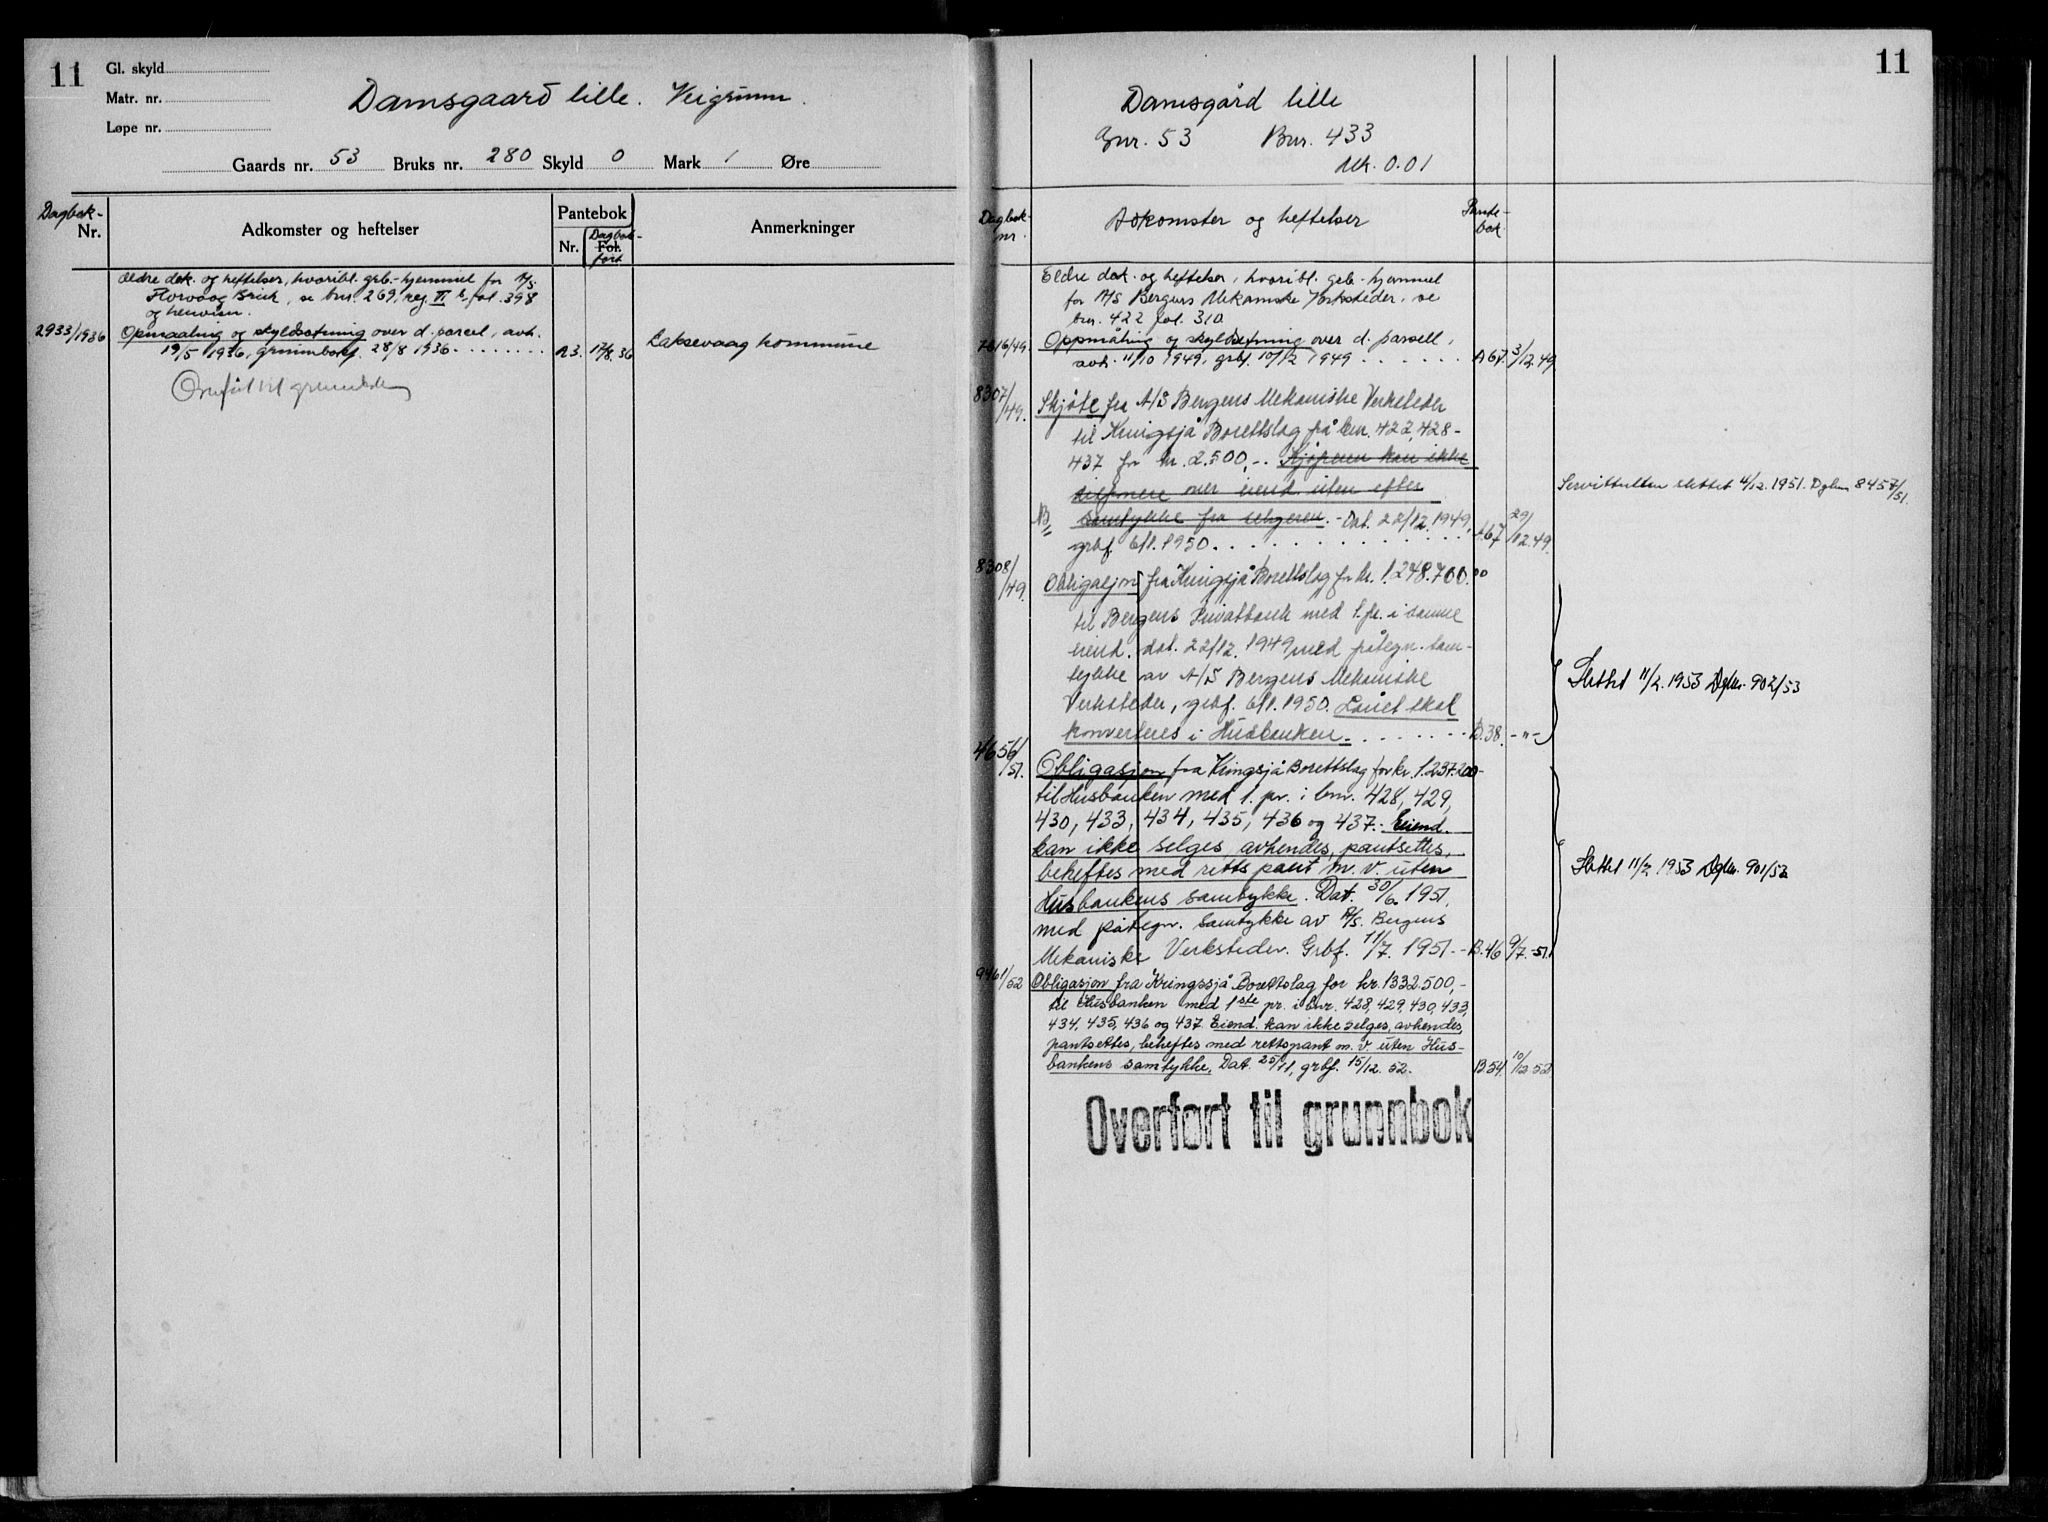 11
Gl. skyld
Matr. nr.
Løpe nr.
Damsgaard lille. Veigrunn.
Gaards nr. 53 Bruks nr. 280 Skyld 0 Mark 1 Øre
Dagbok-
Nr.
Adkomster og heftelser
Pantebok
Nr. Fol. Dagbok-
ført
Anmerkninger
Eldre dok. og heftelser, hvoribl. grb.-hjemmel for A/S.
Florvaag Bruk, se bnr. 269, reg. VI b, fol. 398
og henvisn.
2933/1936 Opmaaling og skyldsetning over d. parcel, avh.
19/5 1936, grunnbokf. 28/8 1936 . . . . . . . A3. 17/8.36 Laksevaag kommune
Overført til grunnbok
11
Damsgård lille
Gnr. 53 Bnr. 433
Mk. 0.01
Dagbok-
nr.
Adkomster og heftelser
Pante-
bok
Eldre dok. og heftelser, hvoribl. grb.-hjemmel
for A/S Bergens Mekaniske Verksteder, se
bnr. 422 fol. 310
7816/49. Oppmåling og skyldsetning over d. parsell,
avh. 11/10 1949, grbf. 10/12 1949 . . . . . . A67. 3/12.49
8307/49. Skjøte fra A/S Bergens Mekaniske Verksteder
til Kringsjå Borettslag på bnr. 422, 428-
437 for kr. 2.500,-. Kjøperen kan ikke
disponere over eiend. uten efter
samtykke fra selgeren. - Dat. 22/12.1949,
grbf. 6/1.1950. . . . . . . . . . . . . . A67 29/12.49.
Servitutten slettet 4/12.1951. Dgbnr 8457/51.
8308/49. Obligasjon fra Kringsjå Borettslag for kr. 1.248.700.00
til Bergens Privatbank med 1. pr. i samme
eiend. dat. 22/12.1949, med påtegn. sam-
tykke av A/S Bergens Mekaniske
Verksteder, grbf. 6/1.1950. Lånet skal
konverteres i Husbanken. . . . . . . . B.38. -"-
Slettet 11/2.1953 Dgbnr. 902/53
4656/51. Obligasjon fra Kringsjå Borettslag for kr. 1.237.200-
til Husbanken med 1. pr. i bnr. 428, 429,
430, 433, 434, 435, 436 og 437.- Eiend.
kan ikke selges, avhendes, pantsettes,
beheftes med retts pant m. v. uten
Husbankens samtykke. Dat. 30/6 1951,
med påtegn. samtykke av A/S. Bergens
Mekaniske Verksteder. Grbf. 11/7. 1951.- B.46 9/7.-51.
Slettet 11/2 1953 Dgbnr. 901/53
9461/52 Obligasjon fra Kringssjå Borettslag for kr. 1332.500,-
til Husbanken med 1ste pr. i bnr. 428, 429, 430, 433,
434, 435, 436 og 437. Eiend. kan ikke selges, avhendes,
pantsettes, beheftes med rettspant m. v. uten Hus-
bankens samtykke. Dat. 25/11, grbf. 15/12. 52. B54. 10/12 52
Overført til grunnbok